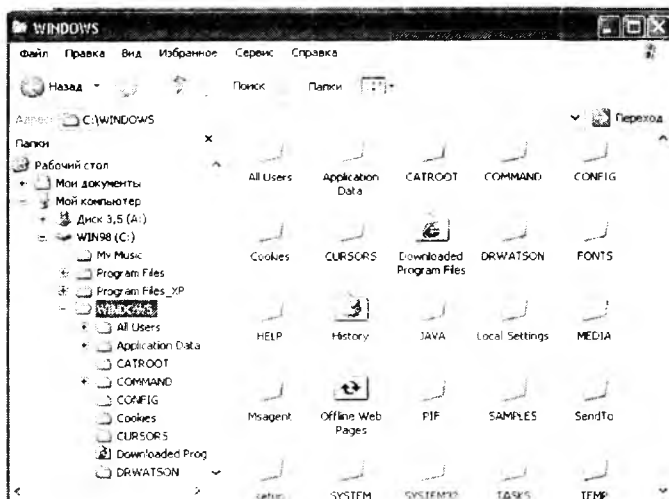 WINDOWS
Файл Правка Вид Избранное Сервис Справка
Назад Поиск Папки
Адрес: C:\WINDOWS Переход
Папки
Рабочий стол
Мои документы
Мой компьютер
Диск 3,5 (A:)
WIN98 (C:)
My Music
Program Files
Program Files_XP
WINDOWS
All Users
Application Data
CATROOT
COMMAND
CONFIG
Cookies
CURSORS
Downloaded Prog
DRWATSON
All Users Application Data CATROOT COMMAND CONFIG
Cookies CURSORS Downloaded Program Files DRWATSON FONTS
HELP History JAVA Local Settings MEDIA
Msagent Offline Web Pages PIF SAMPLES SendTo
setup SYSTEM SYSTEM32 TASKS TEMP